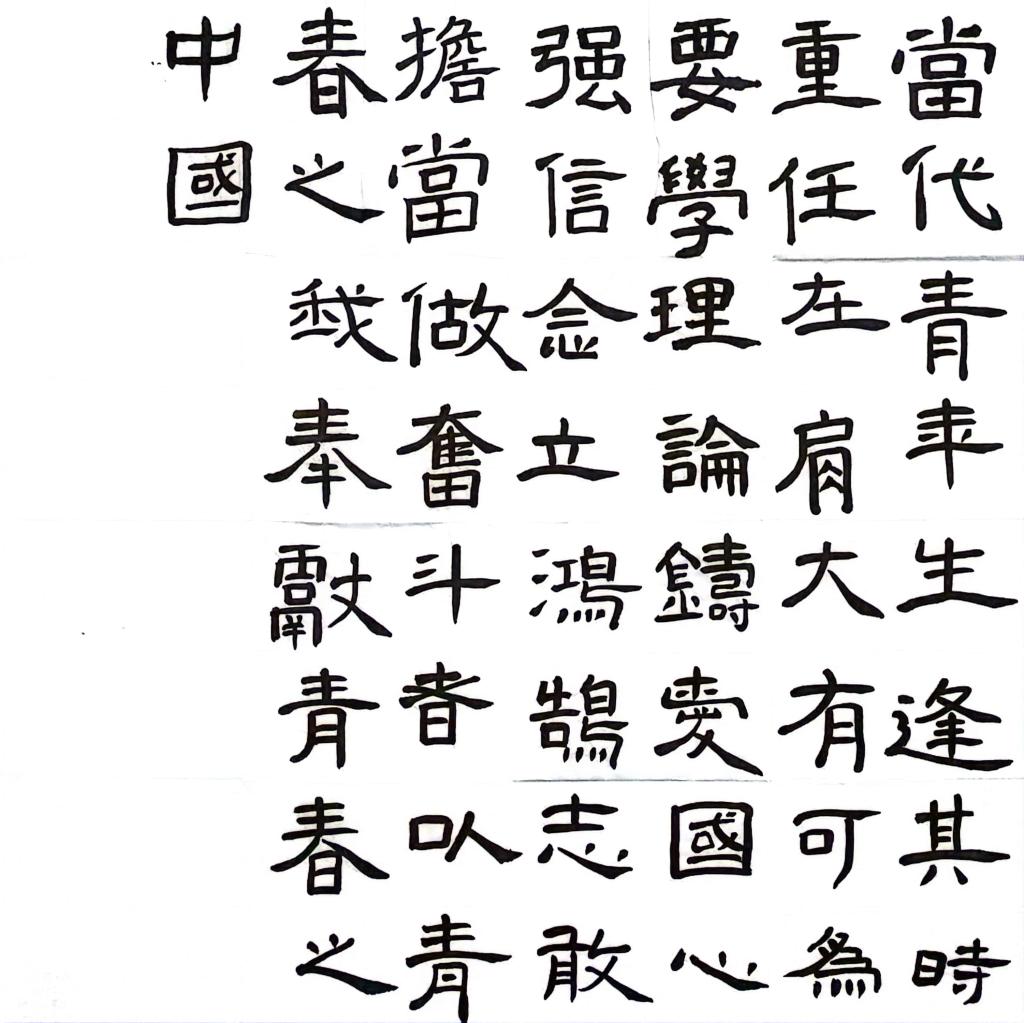 當代青年生逢其時
重任在肩大有可為
要學理論鑄愛國心
强信念立鴻鵠志敢
擔當做奮斗者以青
春之我奉獻青春之
中國